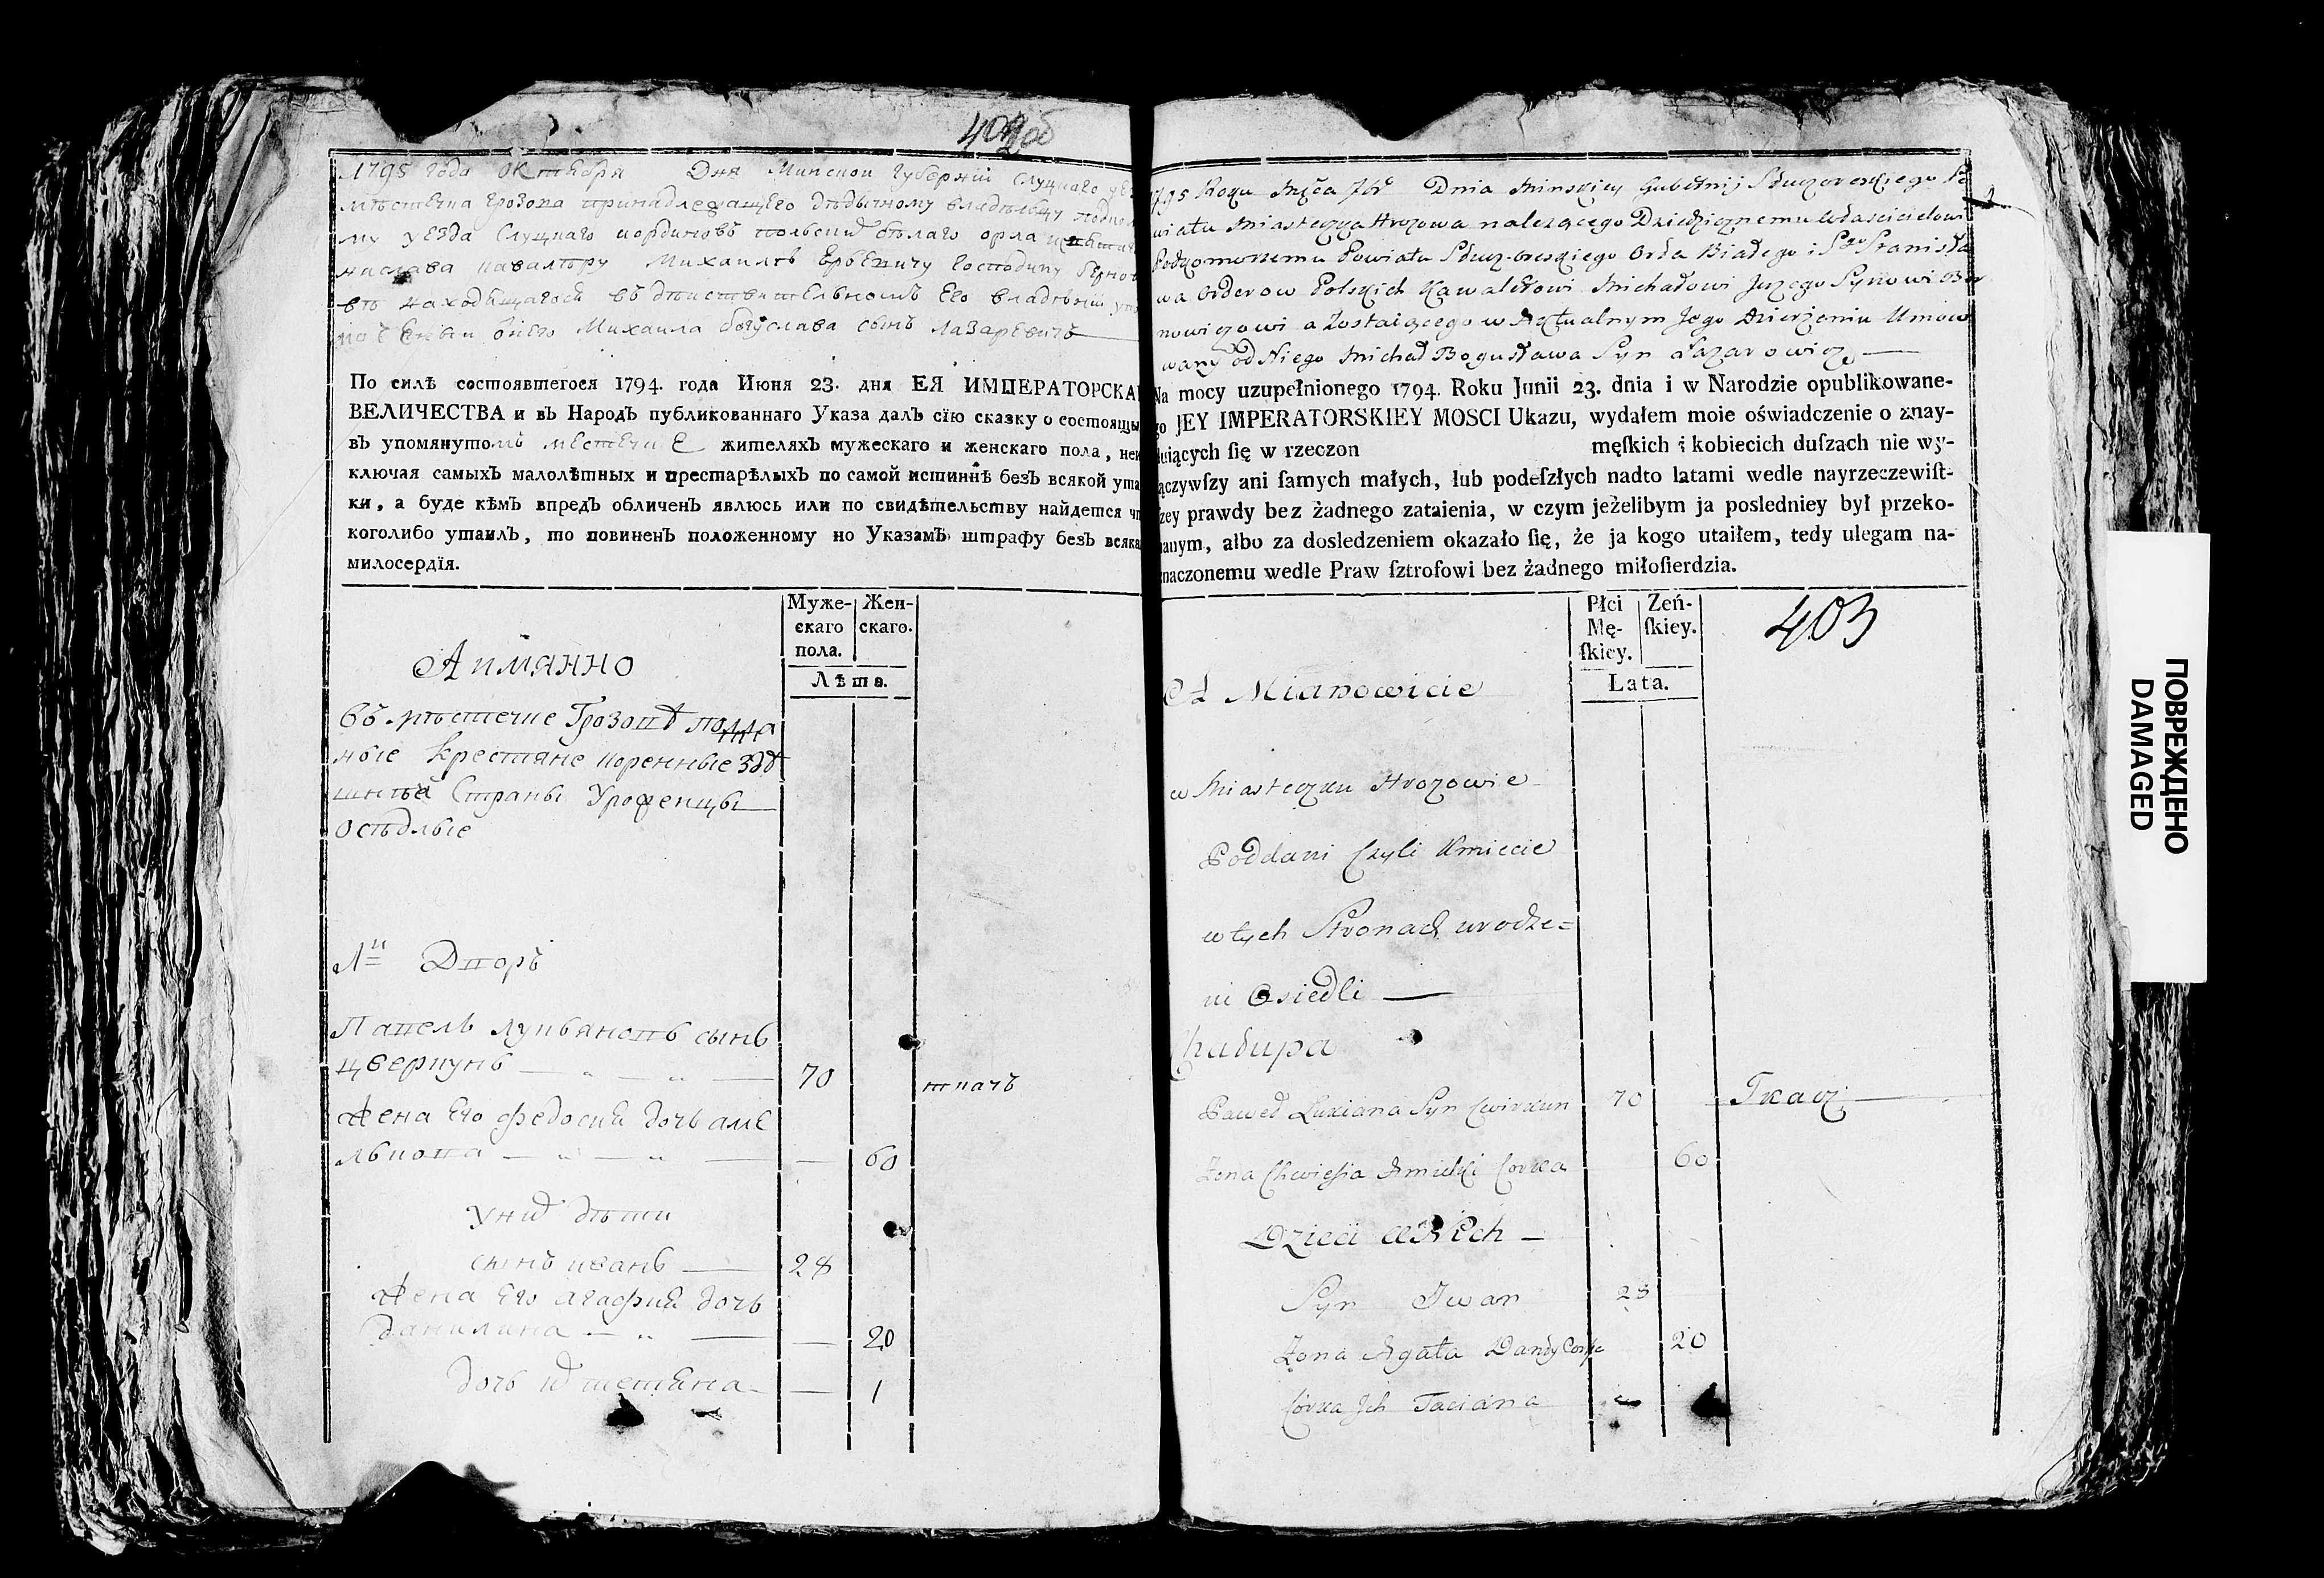 402 об
1795 года Октебря Дня Минской Губерніи Слуцкаго
мѣстечка Грозова принадлежащего дѣдычному владѣльцу
му уезда Слуцкаго иорденовъ польских бѣлаго орла
нислава кавалѣру Михаилѣ Ерьевичу Господину
находящагося въ дѣиствительномъ Его владѣніи
онего Михаила богуслава сынъ Лазаревичъ
По силѣ состоявшегося 1794. года Июня 23. дня ЕЯ ИМПЕРАТОРСКА
ВЕЛИЧЕСТВА и въ Народъ публикованнаго Указа далъ сїю сказку о состоящи
въ упомянутомъ местечке жителяхъ мужескаго и женскаго пола, не
ключая самыхъ малолѣтныхъ и престарѣлыхъ по самой истиннѣ безъ всякой ута
ки, а буде кѣмъ впредъ обличенъ явлюсь или по свидѣтельству найдется
коголибо утаилъ, то повиненъ положенному по Указамъ штрафу безъ всяка
милосердїя.
Муже- Жен-
скаго скаго.
пола.
Лѣта.
Аимянно
въ мѣстечке Грозовѣ подда
ные Крестяне коренные
Страны Уроженцы
Осѣдлые
Дворъ
Павелъ Лукьяновъ сынъ
Цверкунъ 70 ткачъ
Жена Его Федосия дочь аме
лькова 60
У них дѣти
сынъ иванъ 28
Жена Его агафия дочь
данилина 20
дочь их тетяна 1
1795 Roku Msca 7br Dnia Minskiey Gubernij Słuczoreskiego Po
wiatu Miasteczka Hrozowa należącego Dziedzicznemu Włascicielowi
Podkomorzemu Powiatu Słucz-oreskiego Orła Białego i Sgo Stanisła
wa Orderow Polskich Kawalerowi Michałowi Jerzego Synowi Ber
nowiczowi a Zostaiącego w Aktualnym Jego Dzierżeniu Umoco
wany od Niego Michał Bogusława Syn Łazarowicz
Na mocy uzupełnionego 1794. Roku Junii 23. dnia i w Narodzie opublikowane-
go JEY IMPERATORSKIEY MOSCI Ukazu, wydałem moie oświadczenie o znay-
duiących ſię w rzeczon męſkich i kobiecich duſzach nie wy-
łączywſzy ani ſamych małych, lub podeſzłych nadto latami wedle nayrzeczewiſt-
ſzey prawdy bez żadnego zataienia, w czym jeżelibym ja posledniey był przeko-
nanym, albo za dosledzeniem okazało ſię, że ja kogo utaiłem, tedy ulegam na-
znaczonemu wedle Praw ſztrofowi bez żadnego miłoſierdzia.
Płci Zeń-
Mę- ſkiey.
ſkiey.
Lata.
403
A Mianowicie
w Miasteczku Hrozowie
Poddani Czyli Kmiecie
w tych Stronach urodze=
ni Osiedli
Chałupa
Paweł Łukiana Syn Cwirkun 70 Tkacz
Żona Chwiesia Amielki Corka 60
Dzieci u Nich
Syn Iwan 28
Żona Agata Corka 20
Córka Ich Taciana
ПОВРЕЖДЕНО
DAMAGED